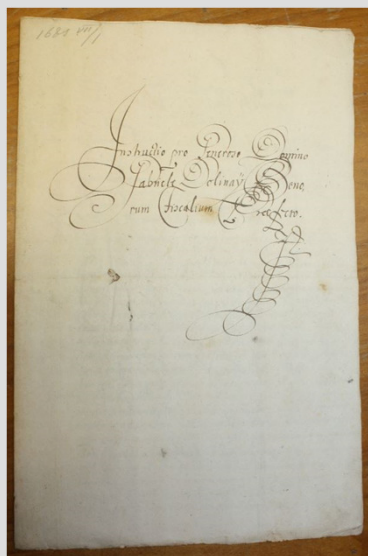 1681 VII/1
Instructio pro Generoso Domino
Gabriele Dolinaÿ Bono
rum Fiscalium Præfecto.